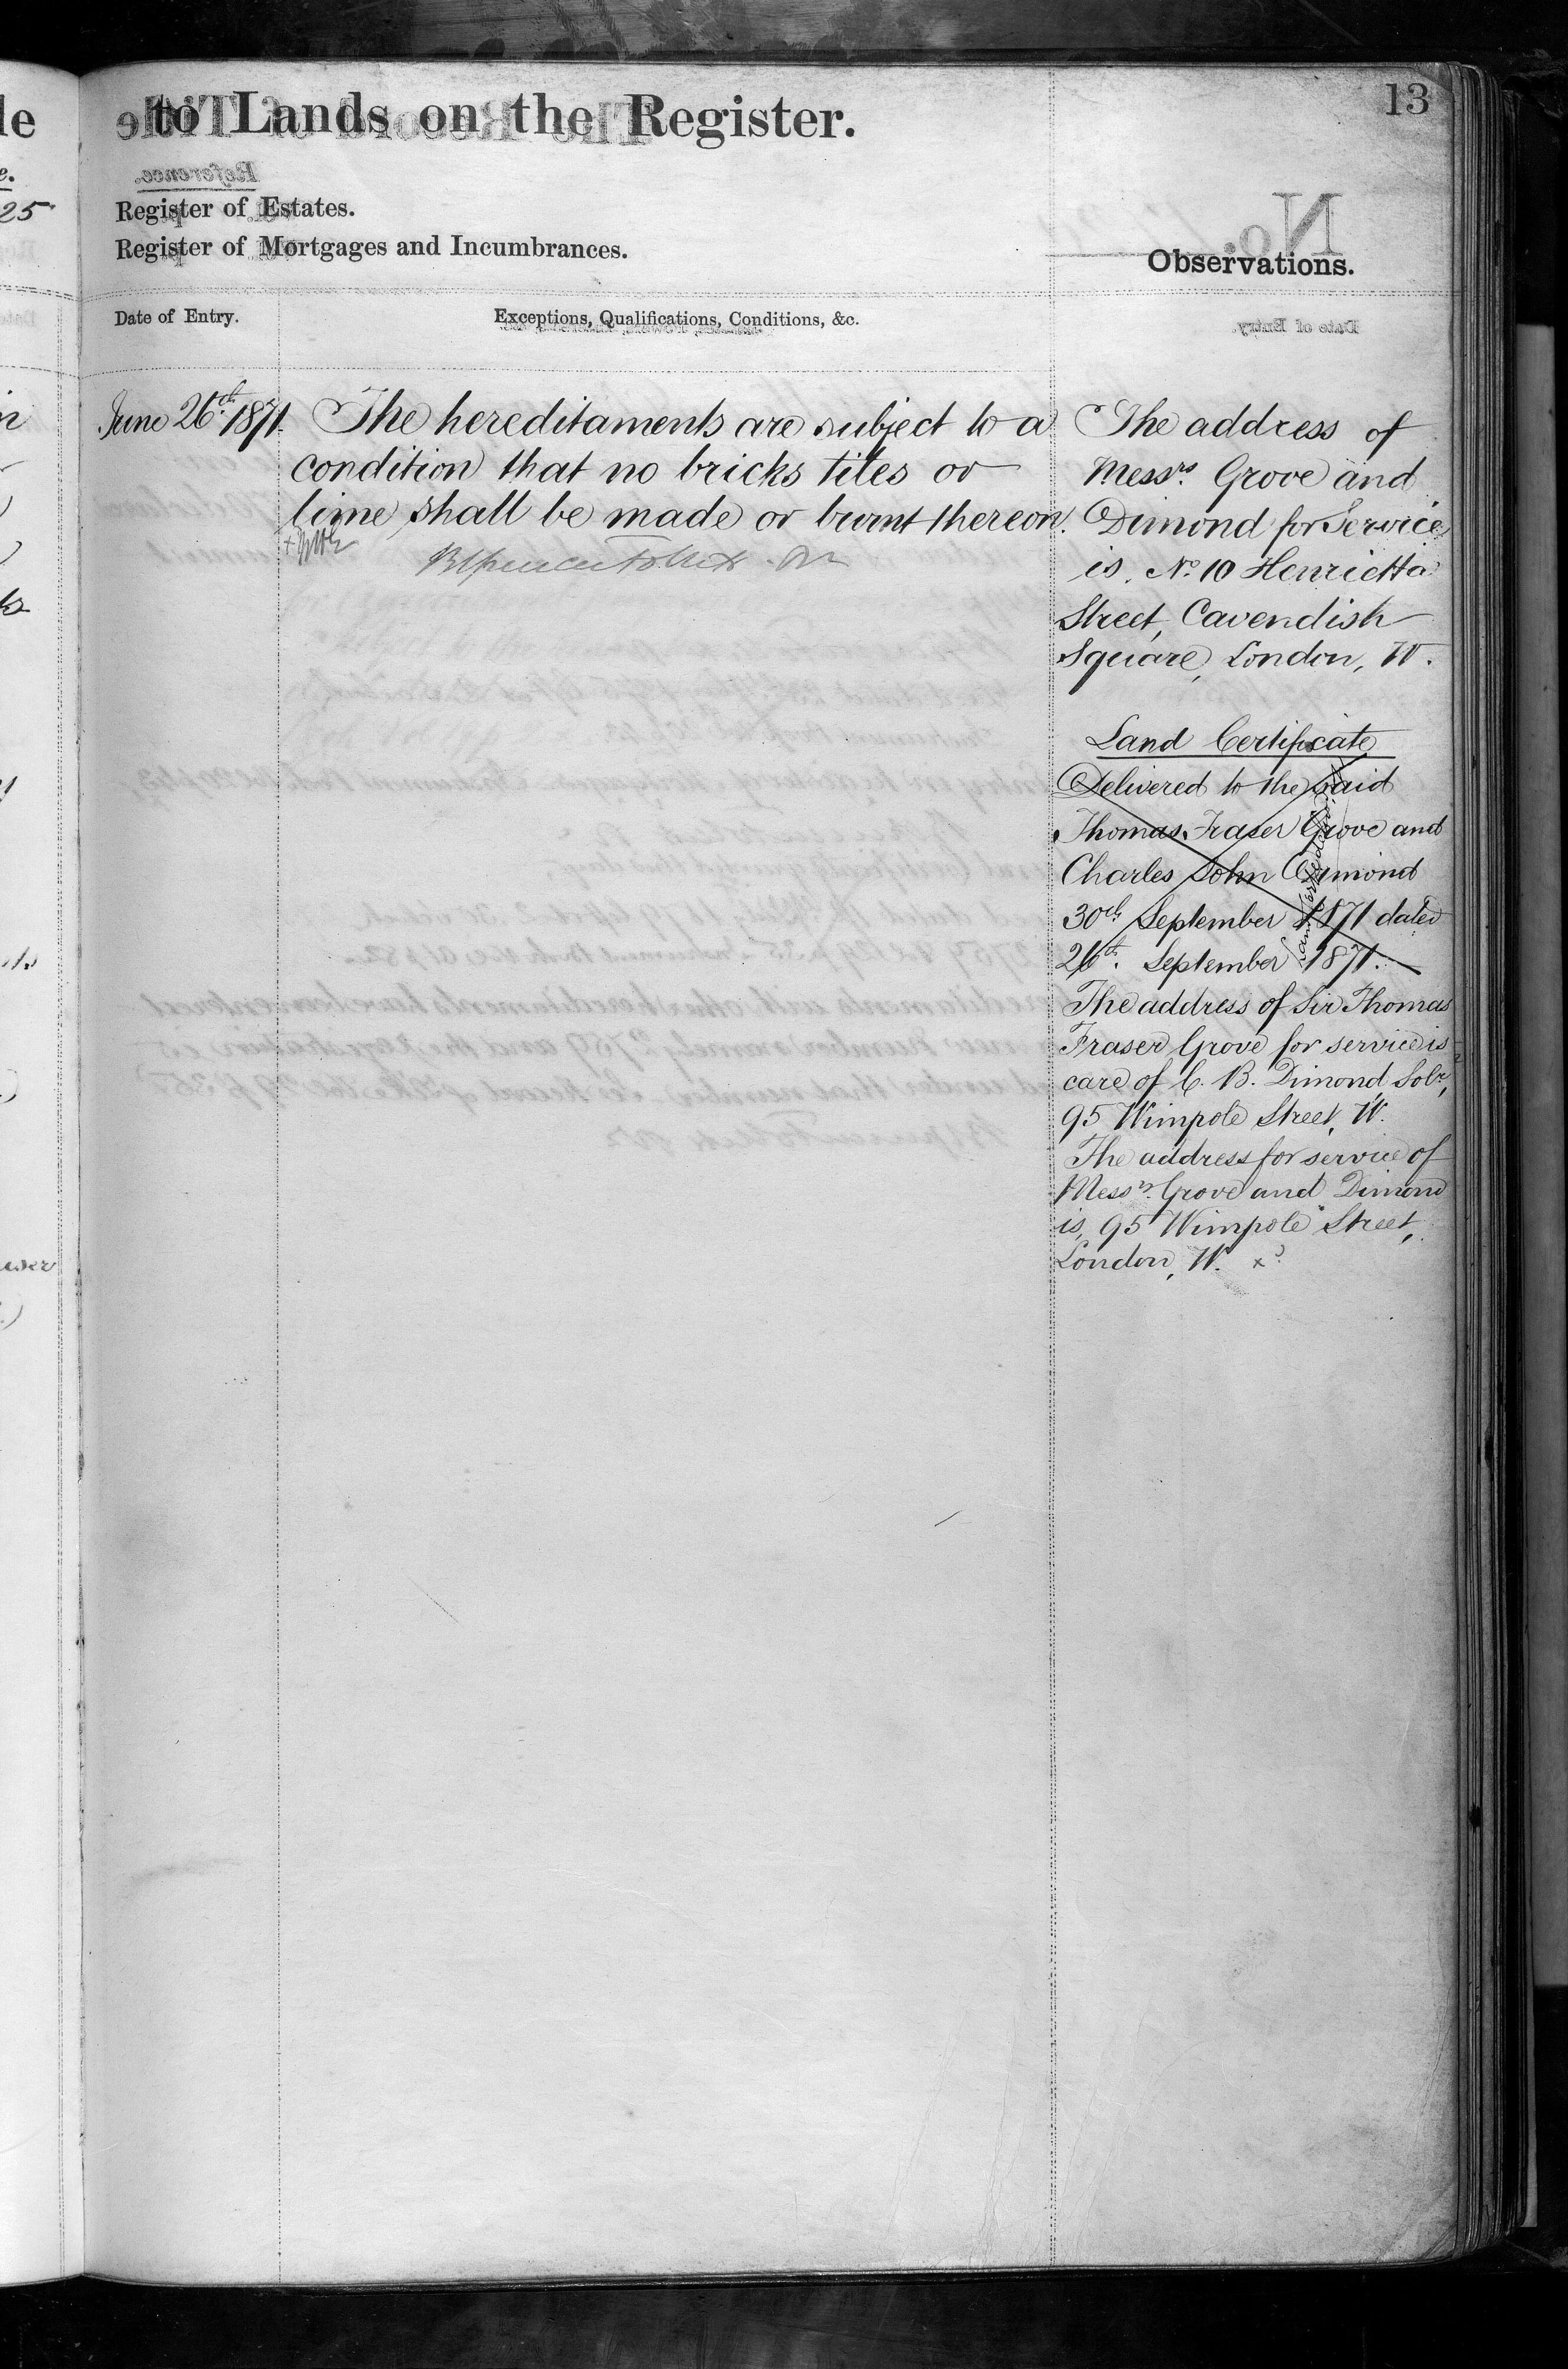 13
to Lands on the Register.
Register of Estates.
Register of Mortgages and Incumbrances.
Observations.
Date of Entry.
Exceptions, Qualifications, Conditions, &c.
June 26th. 1871.
The hereditaments are subject to a
condition that no bricks tiles or
lime shall be made or burnt thereon.
The address of
Messrs. Grove and
Dimond for Service
is, No. 10 Henrietta
Street, Cavendish
Square, London, W.
Land Certificate
Delivered to the said
Thomas Fraser Grove and
Charles John Dimond
30th September 1871 dated
26th. September 1871.
The address of Sir Thomas
Fraser Grove for service is
care of C. B. Dimond, Solr,
95 Wimpole Street, W.
The address for service of
Messrs. Grove and Dimond
is, 95 Wimpole Street,
London, W.
le
e.
25